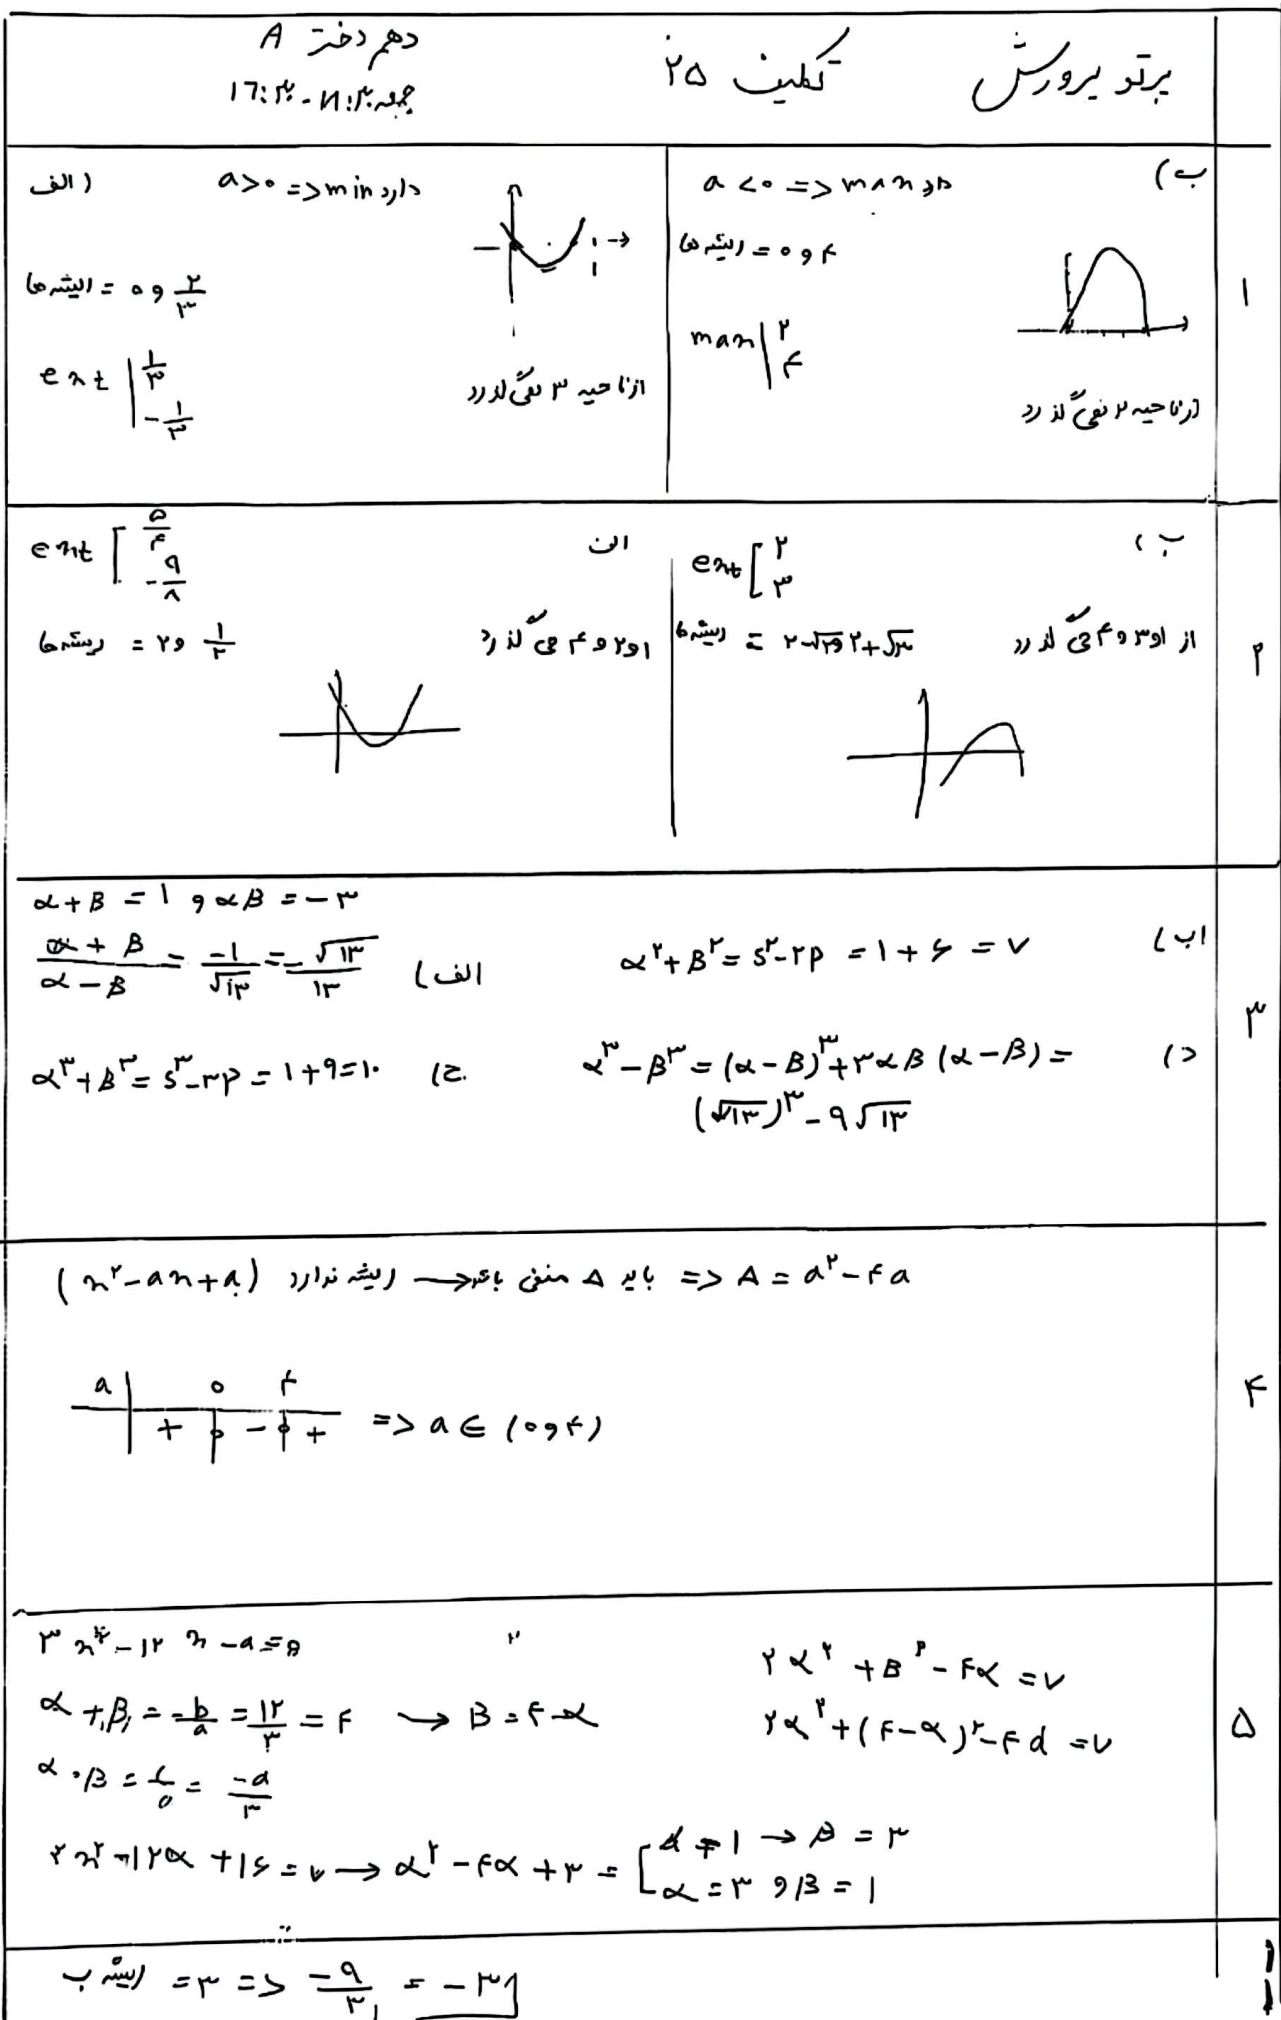 پرتو پرورش تکلیف ۲۵ دهم دختر A
جمعه
۱
الف)
a>۰ => min دارد
ریشه ها = ۰ و ۲/۳
ext | ۱/۳
-۱/۳
از ناحیه ۳ نمی گذرد
ب)
a<۰ => max دارد
ریشه ها = ۰ و ۴
max | ۲
۴
از ناحیه ۲ نمی گذرد
۲
الف
ext [ ۵/۴
-۹/۸
ریشه ها = ۲ و ۱/۲
۱ و ۲ و ۴ می گذرد
ب)
ext [ ۲
۳
ریشه ها = ۲-√۳ و ۲+√۳
از ۱ و ۳ و ۴ می گذرد
۳
α+β = ۱ و αβ = -۳
الف) (α+β)/(α-β) = -۱/√۱۳ = -√۱۳/۱۳
ب) α²+β² = s²-۲p = ۱+۶ = ۷
ج) α³+β³ = s³-۳p = ۱+۹=۱۰
د) α³-β³ = (α-β)³+۳αβ(α-β) =
(√۱۳)³-۹√۱۳
۴
(x²-ax+a) ریشه ندارد → باید Δ منفی باشد => Δ = a²-۴a
a | ۰ ۴
+ - + => a ∈ (۰ و ۴)
۵
۳x²-۱۲x-a=۰
α+β = -b/a = ۱۲/۳ = ۴ → β = ۴-α
α.β = c/a = -a/۳
۲α²+β²-۴α = ۷
۲α²+(۴-α)²-۴α = ۷
۳α²-۱۲α+۱۶ = ۷ → α²-۴α+۳ = [ α=۱ → β=۳
α=۳ و β=۱
ریشه ب = ۳ => -۹/۳ = -۳